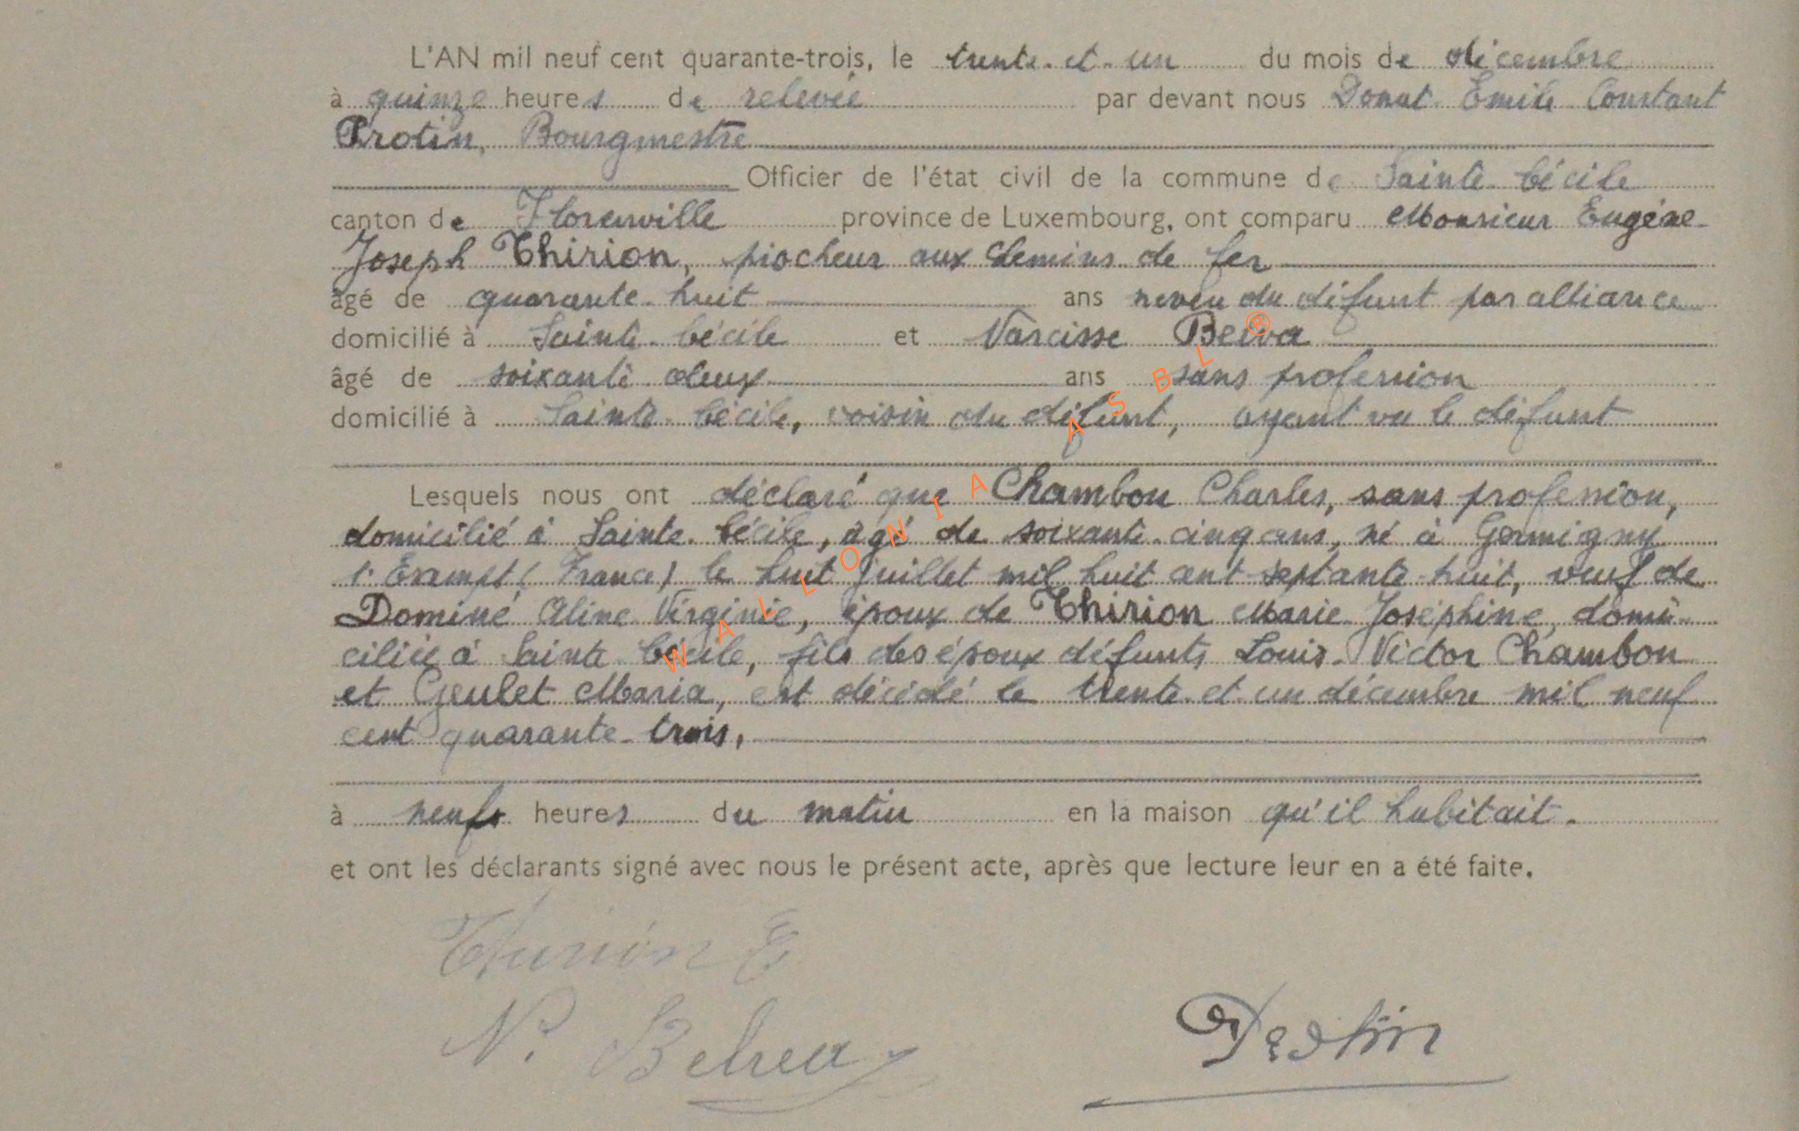 L'AN mil neuf cent quarante-trois, le trente-et-un du mois de décembre
à quinze heures de relevée par devant nous Donat Emile Constant
Protin, Bourgmestre
Officier de l'état civil de la commune de Sainte-Cécile
canton de Florenville province de Luxembourg, ont comparu Monsieur Eugène
Joseph Thirion, piocheur aux chemins de fer
âgé de quarante-huit ans neveu du défunt par alliance
domicilié à Sainte-Cécile et Narcisse
âgé de soixante deux ans sans profession
domicilié à Sainte-Cécile, voisin du défunt, ayant vu le défunt
Lesquels nous ont déclaré que Chambon Charles, sans profession,
domicilié à Sainte-Cécile, âgé de soixante-cinq ans, né à Germigny
l'Exempt (France) le huit juillet mil huit cent septante-huit, veuf de
Dominé Aline Virginie, époux de Thirion Marie Joséphine, domi-
ciliée à Sainte-Cécile, fils des époux défunts Louis-Victor Chambon
et Geulet Maria, est décédé le trente-et-un décembre mil neuf
cent quarante-trois,
à neufs heures du matin en la maison qu'il habitait.
et ont les déclarants signé avec nous le présent acte, après que lecture leur en a été faite.
Thirion E
N.
Protin
WALLONIA ASBL ®